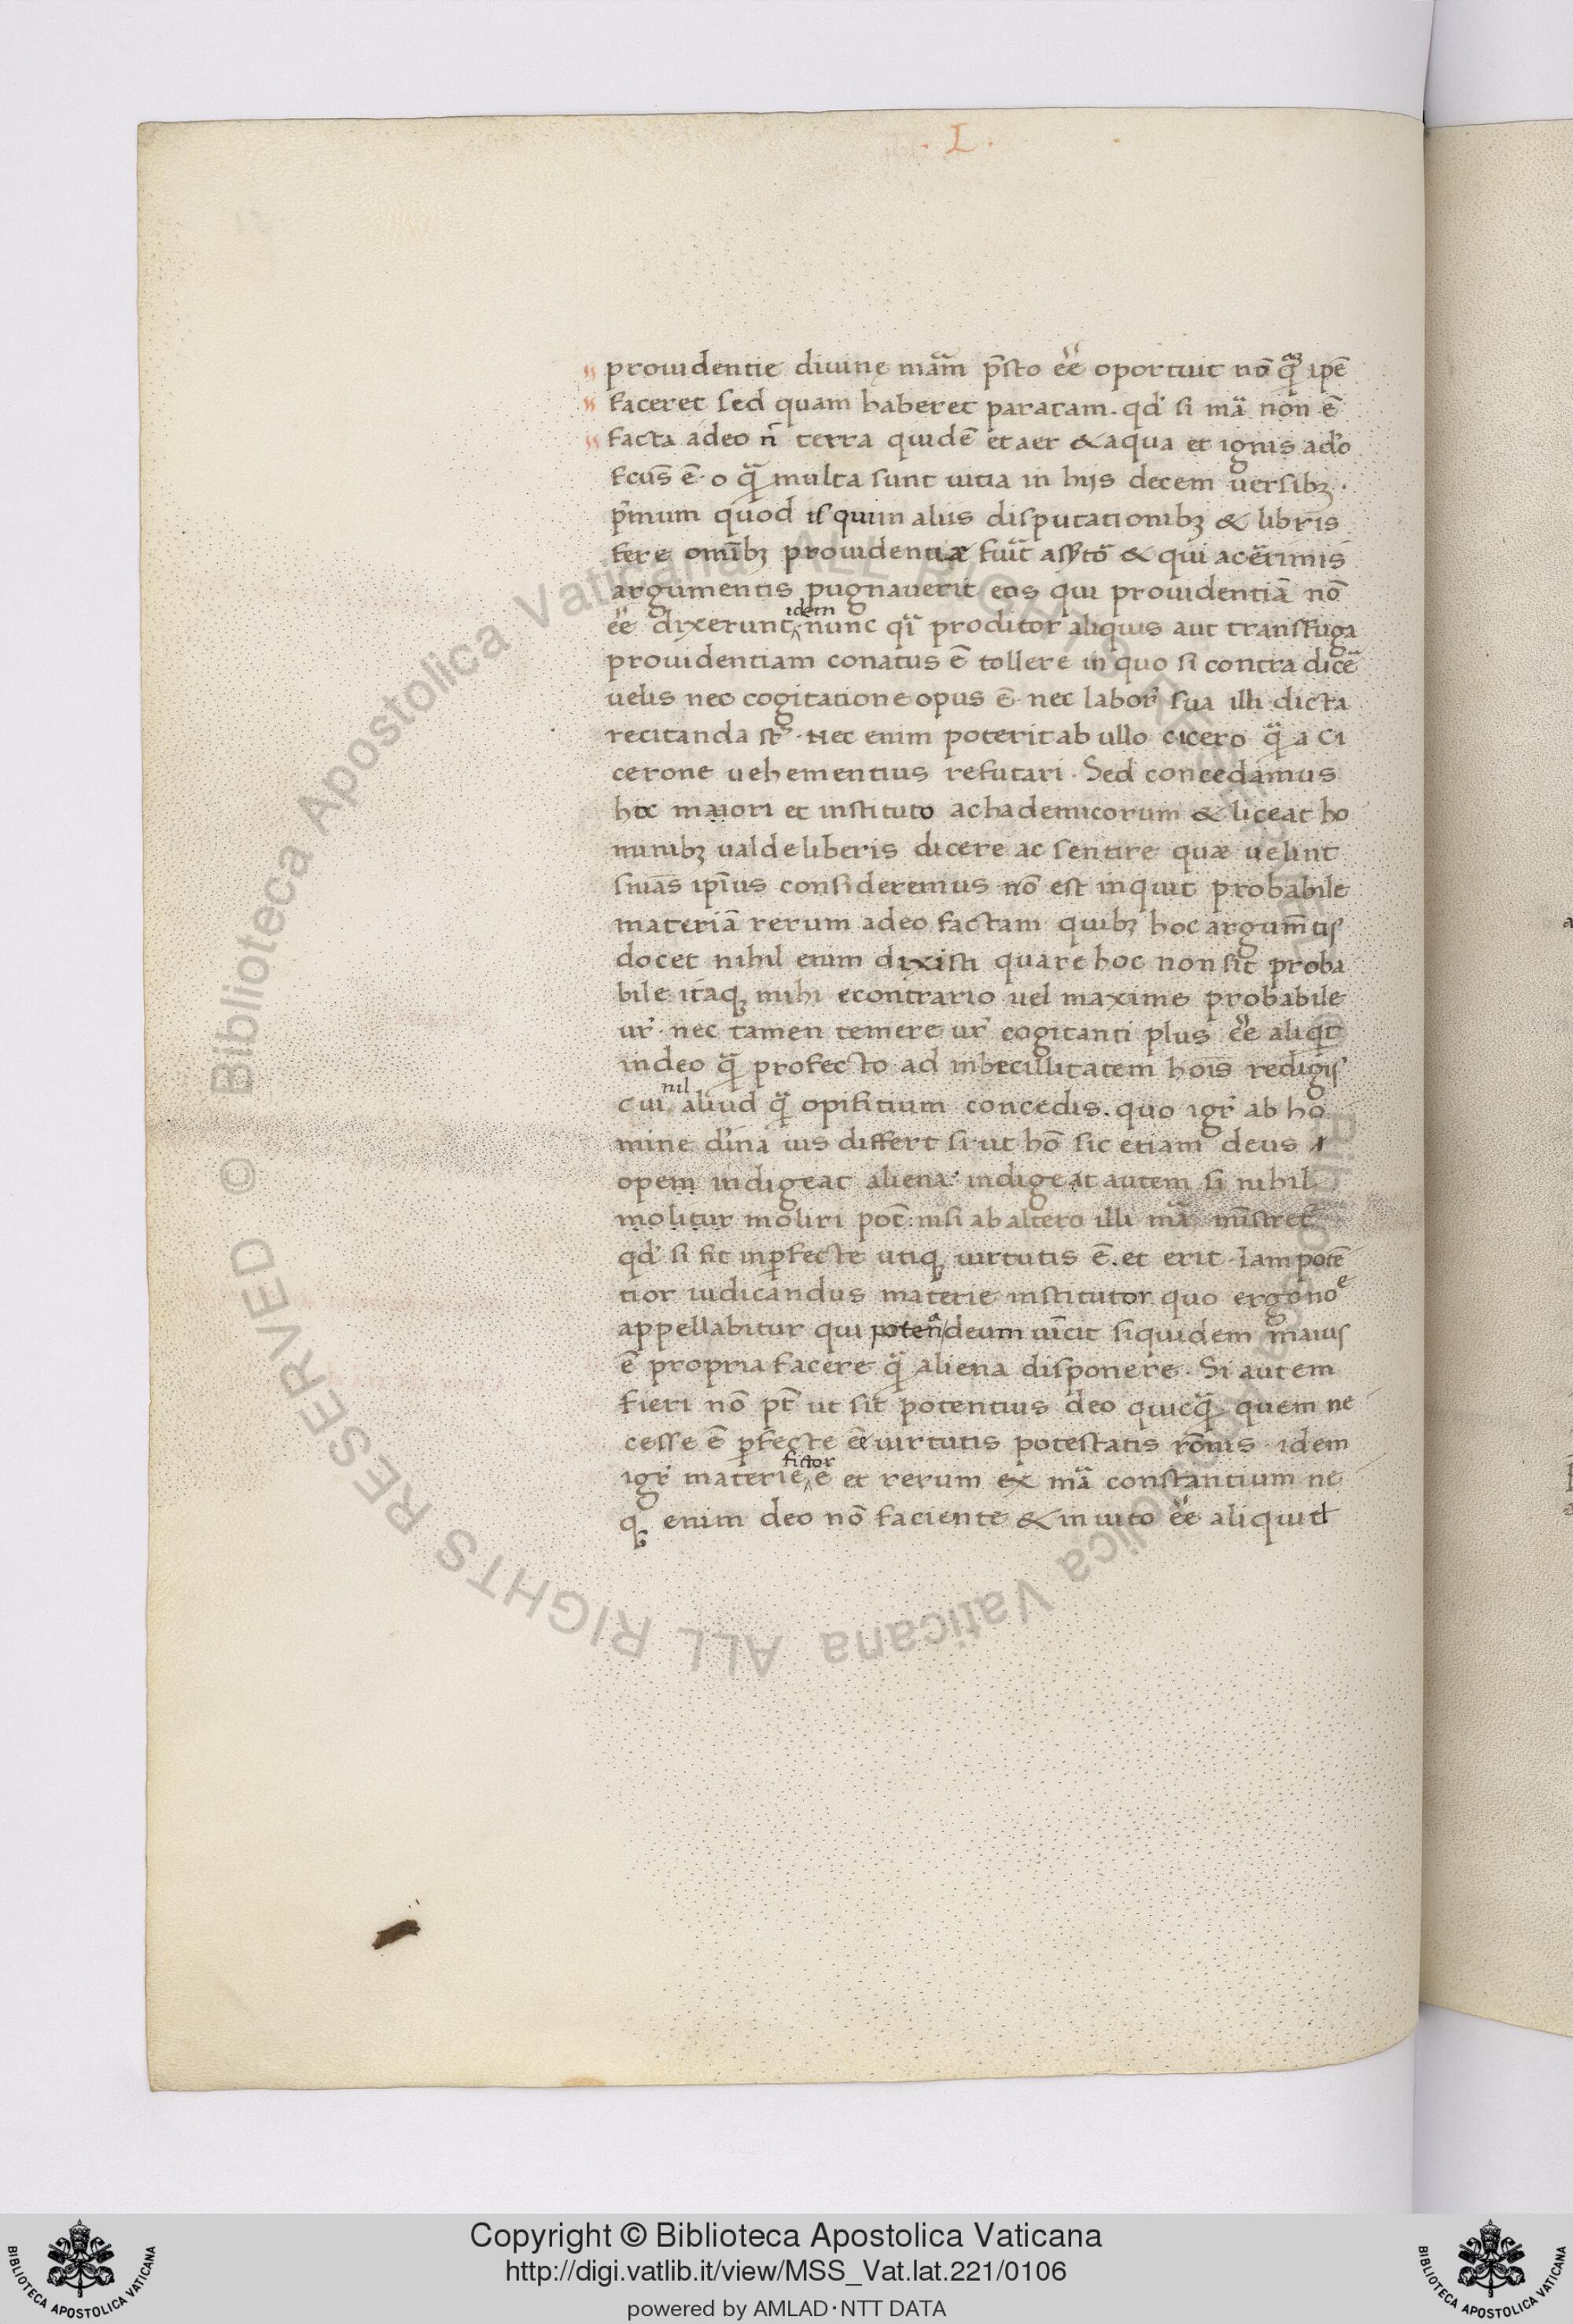 . L .
prouidentie diuinę mãm p̃sto ẽe oportuit nõ q̃ꝫ ip̃e
faceret sed quam haberet paratam. qd' si mã non ẽ
facta adeo ñ terra quidẽ et aer & aqua et ignis ad'o
fcũs ẽ. o q̃ multa sunt uitia in hijs decem uersibꝫ.
p'mum quod is qui in aliis disputationibꝫ & libris
fere om̃ibꝫ prouidentiæ fuĩt & qui acẽrimis
argumentis pugnauerit eos qui prouidentiã nõ
ẽe dixerunt idem nunc q̃i proditor aliquis aut transfuga
prouidentiam conatus ẽ tollere in quo si contra dicẽ
uelis nec cogitatione opus ẽ. nec labor' sua illi dicta
recitanda st'. nec enim poterit ab ullo cicero q̃ a ci
cerone uehementius refutari. Sed concedamus
hoc maiori et instituto achademicorum & liceat ho
minibꝫ ualde liberis dicere ac sentire quæ uelint
sñias ip̃ius consideremus nõ est inquit probabile
materiã rerum adeo factam quibꝫ hoc argum̃tis
docet nihil enim dixisti quare hoc non sit proba
bile itaqꝫ mihi econtrario uel maxime probabile
ur'. nec tamen temere ur' cogitanti plus ẽe aliqit
in deo q̃ profecto ad inbecillitatem hoĩs redigis
cui nil aliud q̃ opifitium concedis. quo igr' ab ho
mine d'ina uis differt si ut hõ sic etiam deus
opem indigeat aliena indigeat autem si nihil
molitur moliri pot̃: nisi ab altero illi mã miñstret'
qd' si fit inp̱fecte utiqꝫ uirtutis ẽ. et erit iam potẽ
tior iudicandus materie institutor quo ergo noẽ
appellabitur qui poteña deum uĩcit siquidem maius
ẽ propria facere q̃ aliena disponere. Si autem
fieri nõ pt̃ ut sit potentius deo quicq̃ quem ne
cesse ẽ p̱fecte ẽe uirtutis potestatis rõnis idem
igr' materie fictor ẽ et rerum ex mã constantium ne
qꝫ enim deo nõ faciente & inuito ẽe aliquid
© Biblioteca Apostolica Vaticana ALL RIGHTS RESERVED © Biblioteca Apostolica Vaticana ALL RIGHTS RESERVED
BIBLIOTECA APOSTOLICA VATICANA
Copyright © Biblioteca Apostolica Vaticana
http://digi.vatlib.it/view/MSS_Vat.lat.221/0106
powered by AMLAD·NTT DATA
BIBLIOTECA APOSTOLICA VATICANA